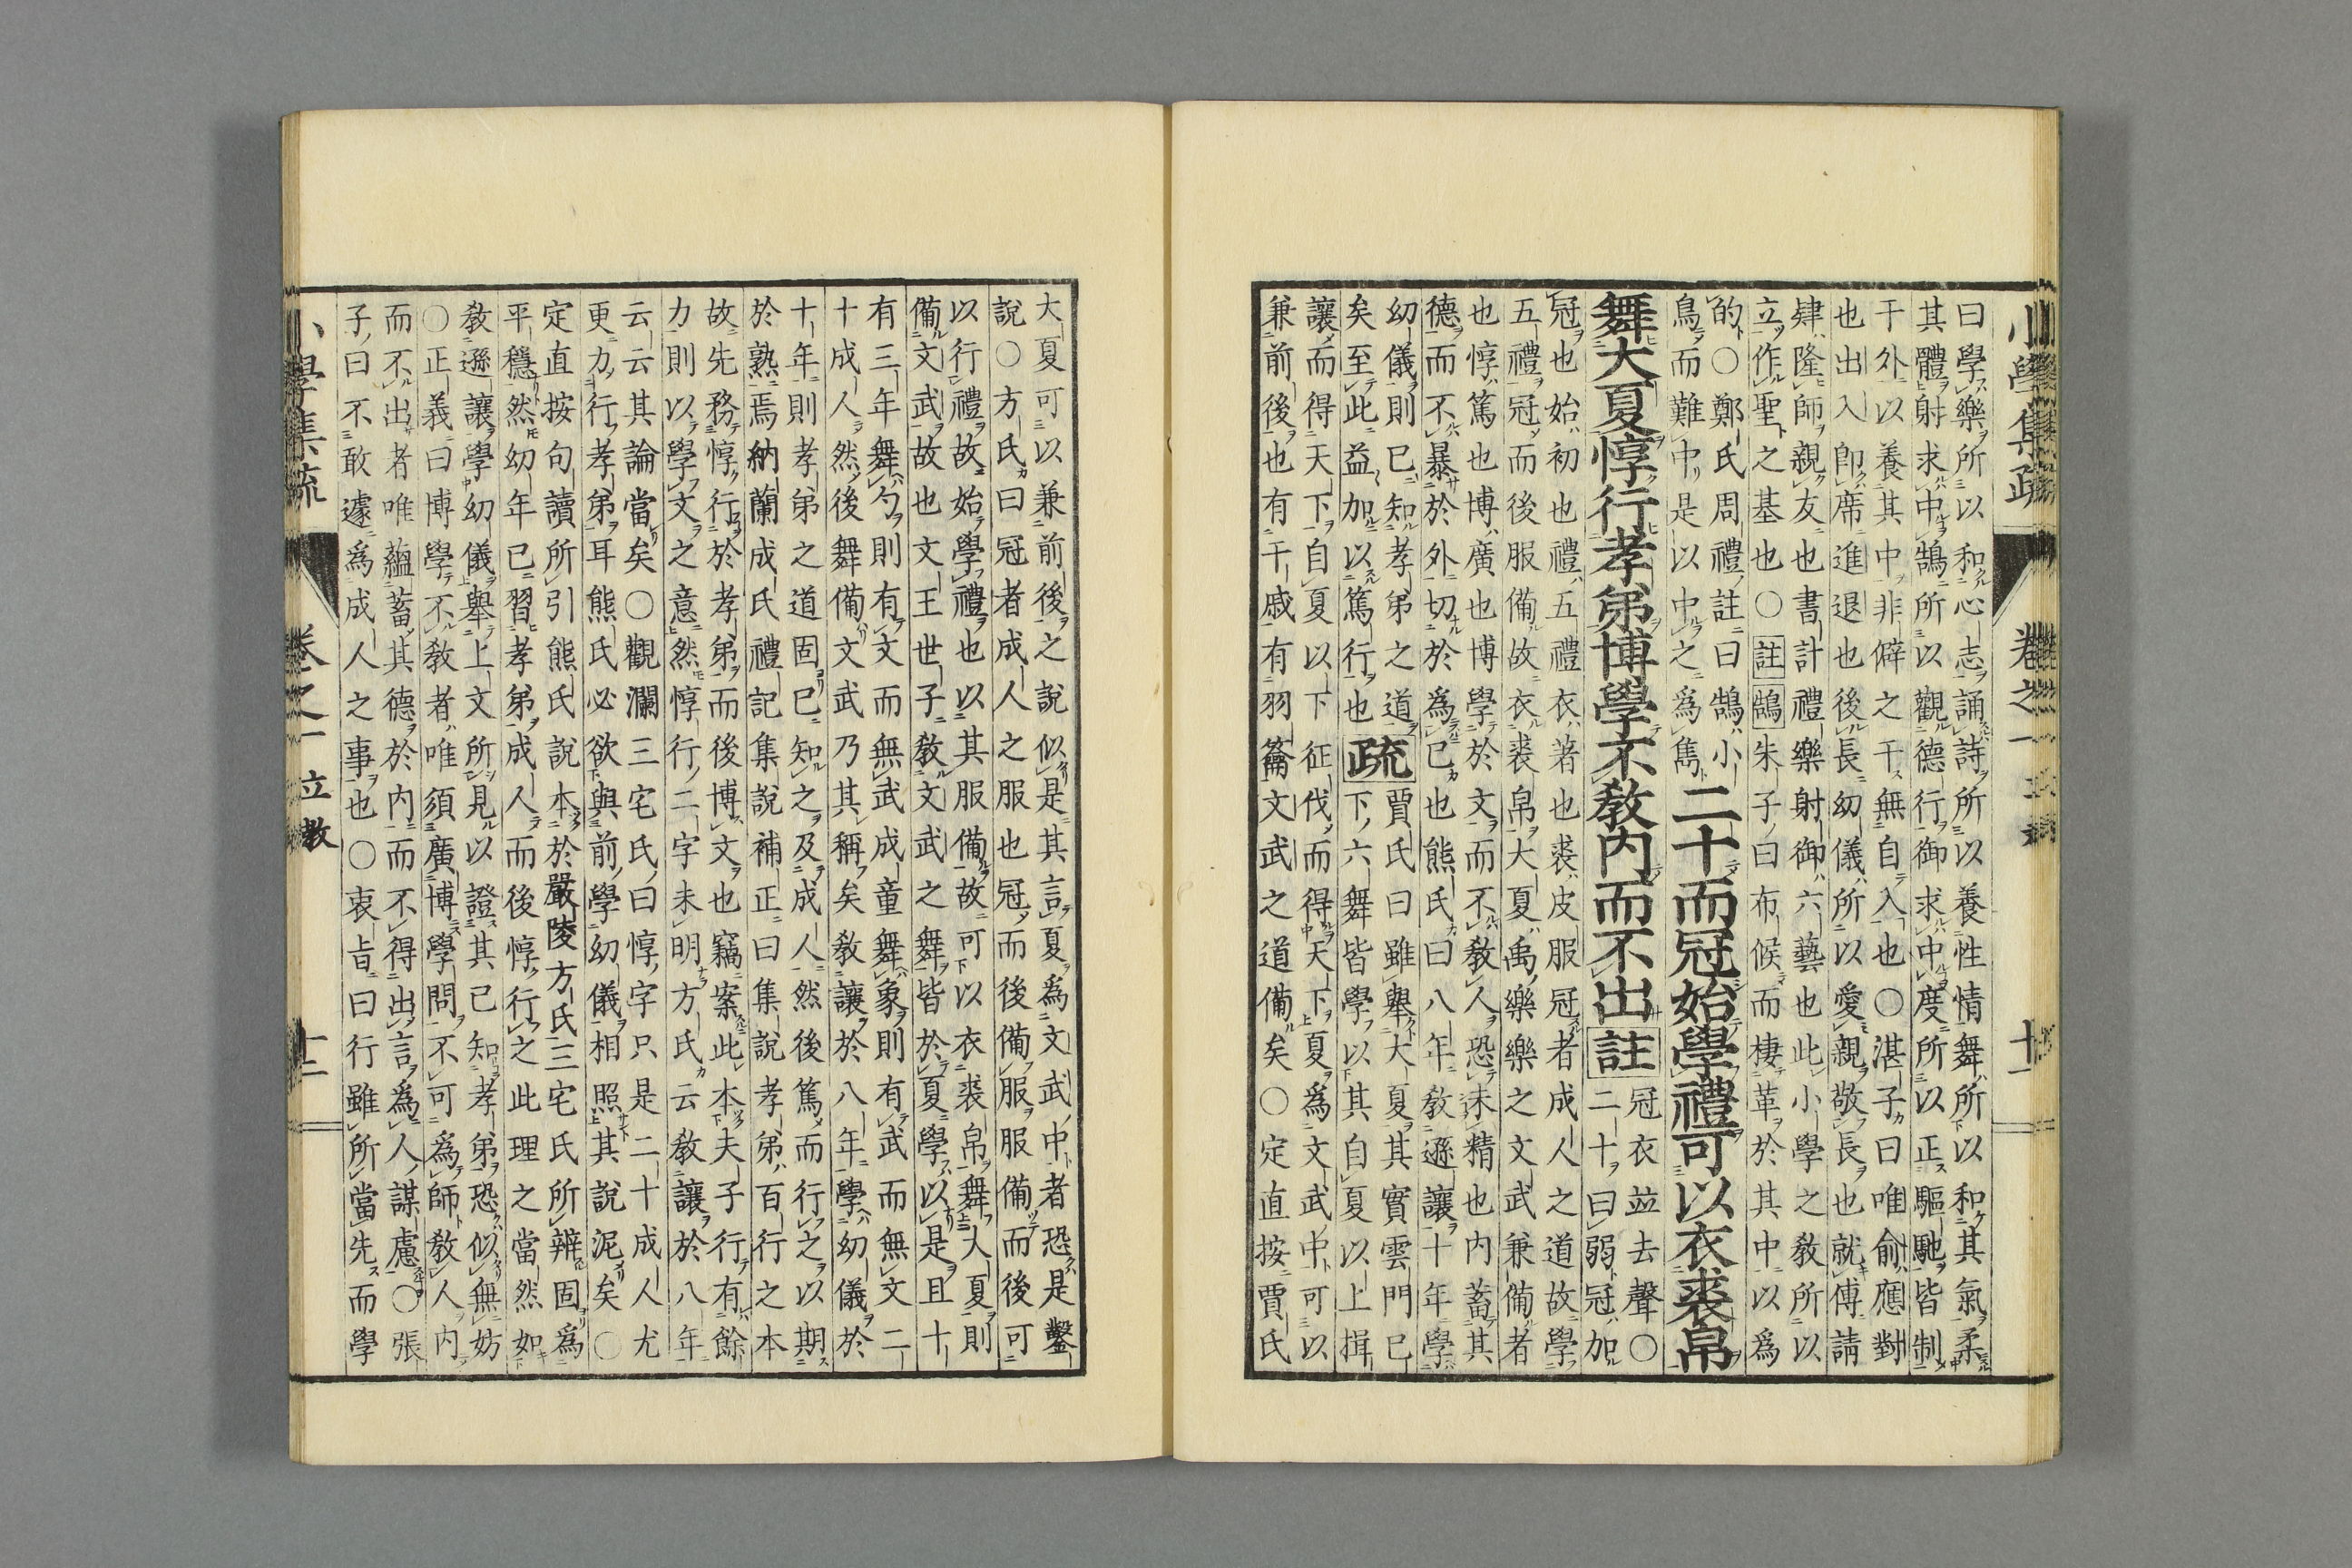 小學集疏 卷之一 十一
曰學樂所以和心志誦詩所以養性情舞所以和其氣柔
其體射求中鵠所以觀德行御求中度所以正驅馳皆制
于外以養其中非僻之干無自入也○湛子曰唯俞應對
也出入卽席進退也後長幼儀所以愛親敬長也就傅請
肄隆師親友也書計禮樂射御六藝也此小學之敎所以
立作聖之基也○註鵠朱子曰布候而棲革於其中以爲
的○鄭氏周禮註曰鵠小
鳥而難中是以中之爲雋
二十而冠始學禮可以衣裘帛
舞大夏惇行孝弟博學不敎内而不出註
冠衣竝去聲○
二十曰弱冠加
冠也始初也禮五禮衣著也裘皮服冠者成人之道故學
五禮冠而後服備故衣裘帛大夏禹樂樂之文武兼備者
也惇篤也博廣也博學於文而不敎人恐未精也内蓄其
德而不暴於外切於爲已也熊氏曰八年敎遜讓十年學
幼儀則已知孝弟之道
矣至此益加以篤行也
疏
賈氏曰雖舉大夏其實雲門已
下六舞皆學以其自夏以上揖
讓而得天下自夏以下征伐而得天下夏爲文武中可以
兼前後也有干戚有羽籥文武之道備矣○定直按賈氏
大夏可以兼前後之說似是其言夏爲文武中者恐是鑿
說○方氏曰冠者成人之服也冠而後備服服備而後可
以行禮故始學禮也以其服備故可以衣裘帛舞大夏則
備文武故也文王世子敎文武之舞皆於夏學以是且十
有三年舞勺則有文而無武成童舞象則有武而無文二
十成人然後舞備文武乃其稱矣敎讓於八年學幼儀於
十年則孝弟之道固已知之及成人然後篤而行之以期
於熟焉納蘭成氏禮記集說補正曰集說孝弟百行之本
故先務惇行於孝弟而後博文也竊案此本夫子行有餘
力則以學文之意然惇行二字未明方氏云敎讓於八年
云云其論當矣○觀瀾三宅氏曰惇字只是二十成人尤
更力行孝弟耳熊氏必欲與前學幼儀相照其說泥矣○
定直按句讀所引熊氏說本於嚴陵方氏三宅氏所辨固爲
平穩然幼年已習孝弟成人而後惇行之此理之當然如
敎遜讓學幼儀舉上文所見以證其已知孝弟恐似無妨
○正義曰博學不敎者唯須廣博學問不可爲師敎人内
而不出者唯蘊蓄其德於内而不得出言爲人謀慮○張
子曰不敢遽爲成人之事也○衷旨曰行雖所當先而學
小學集疏 卷之一 立教 十二